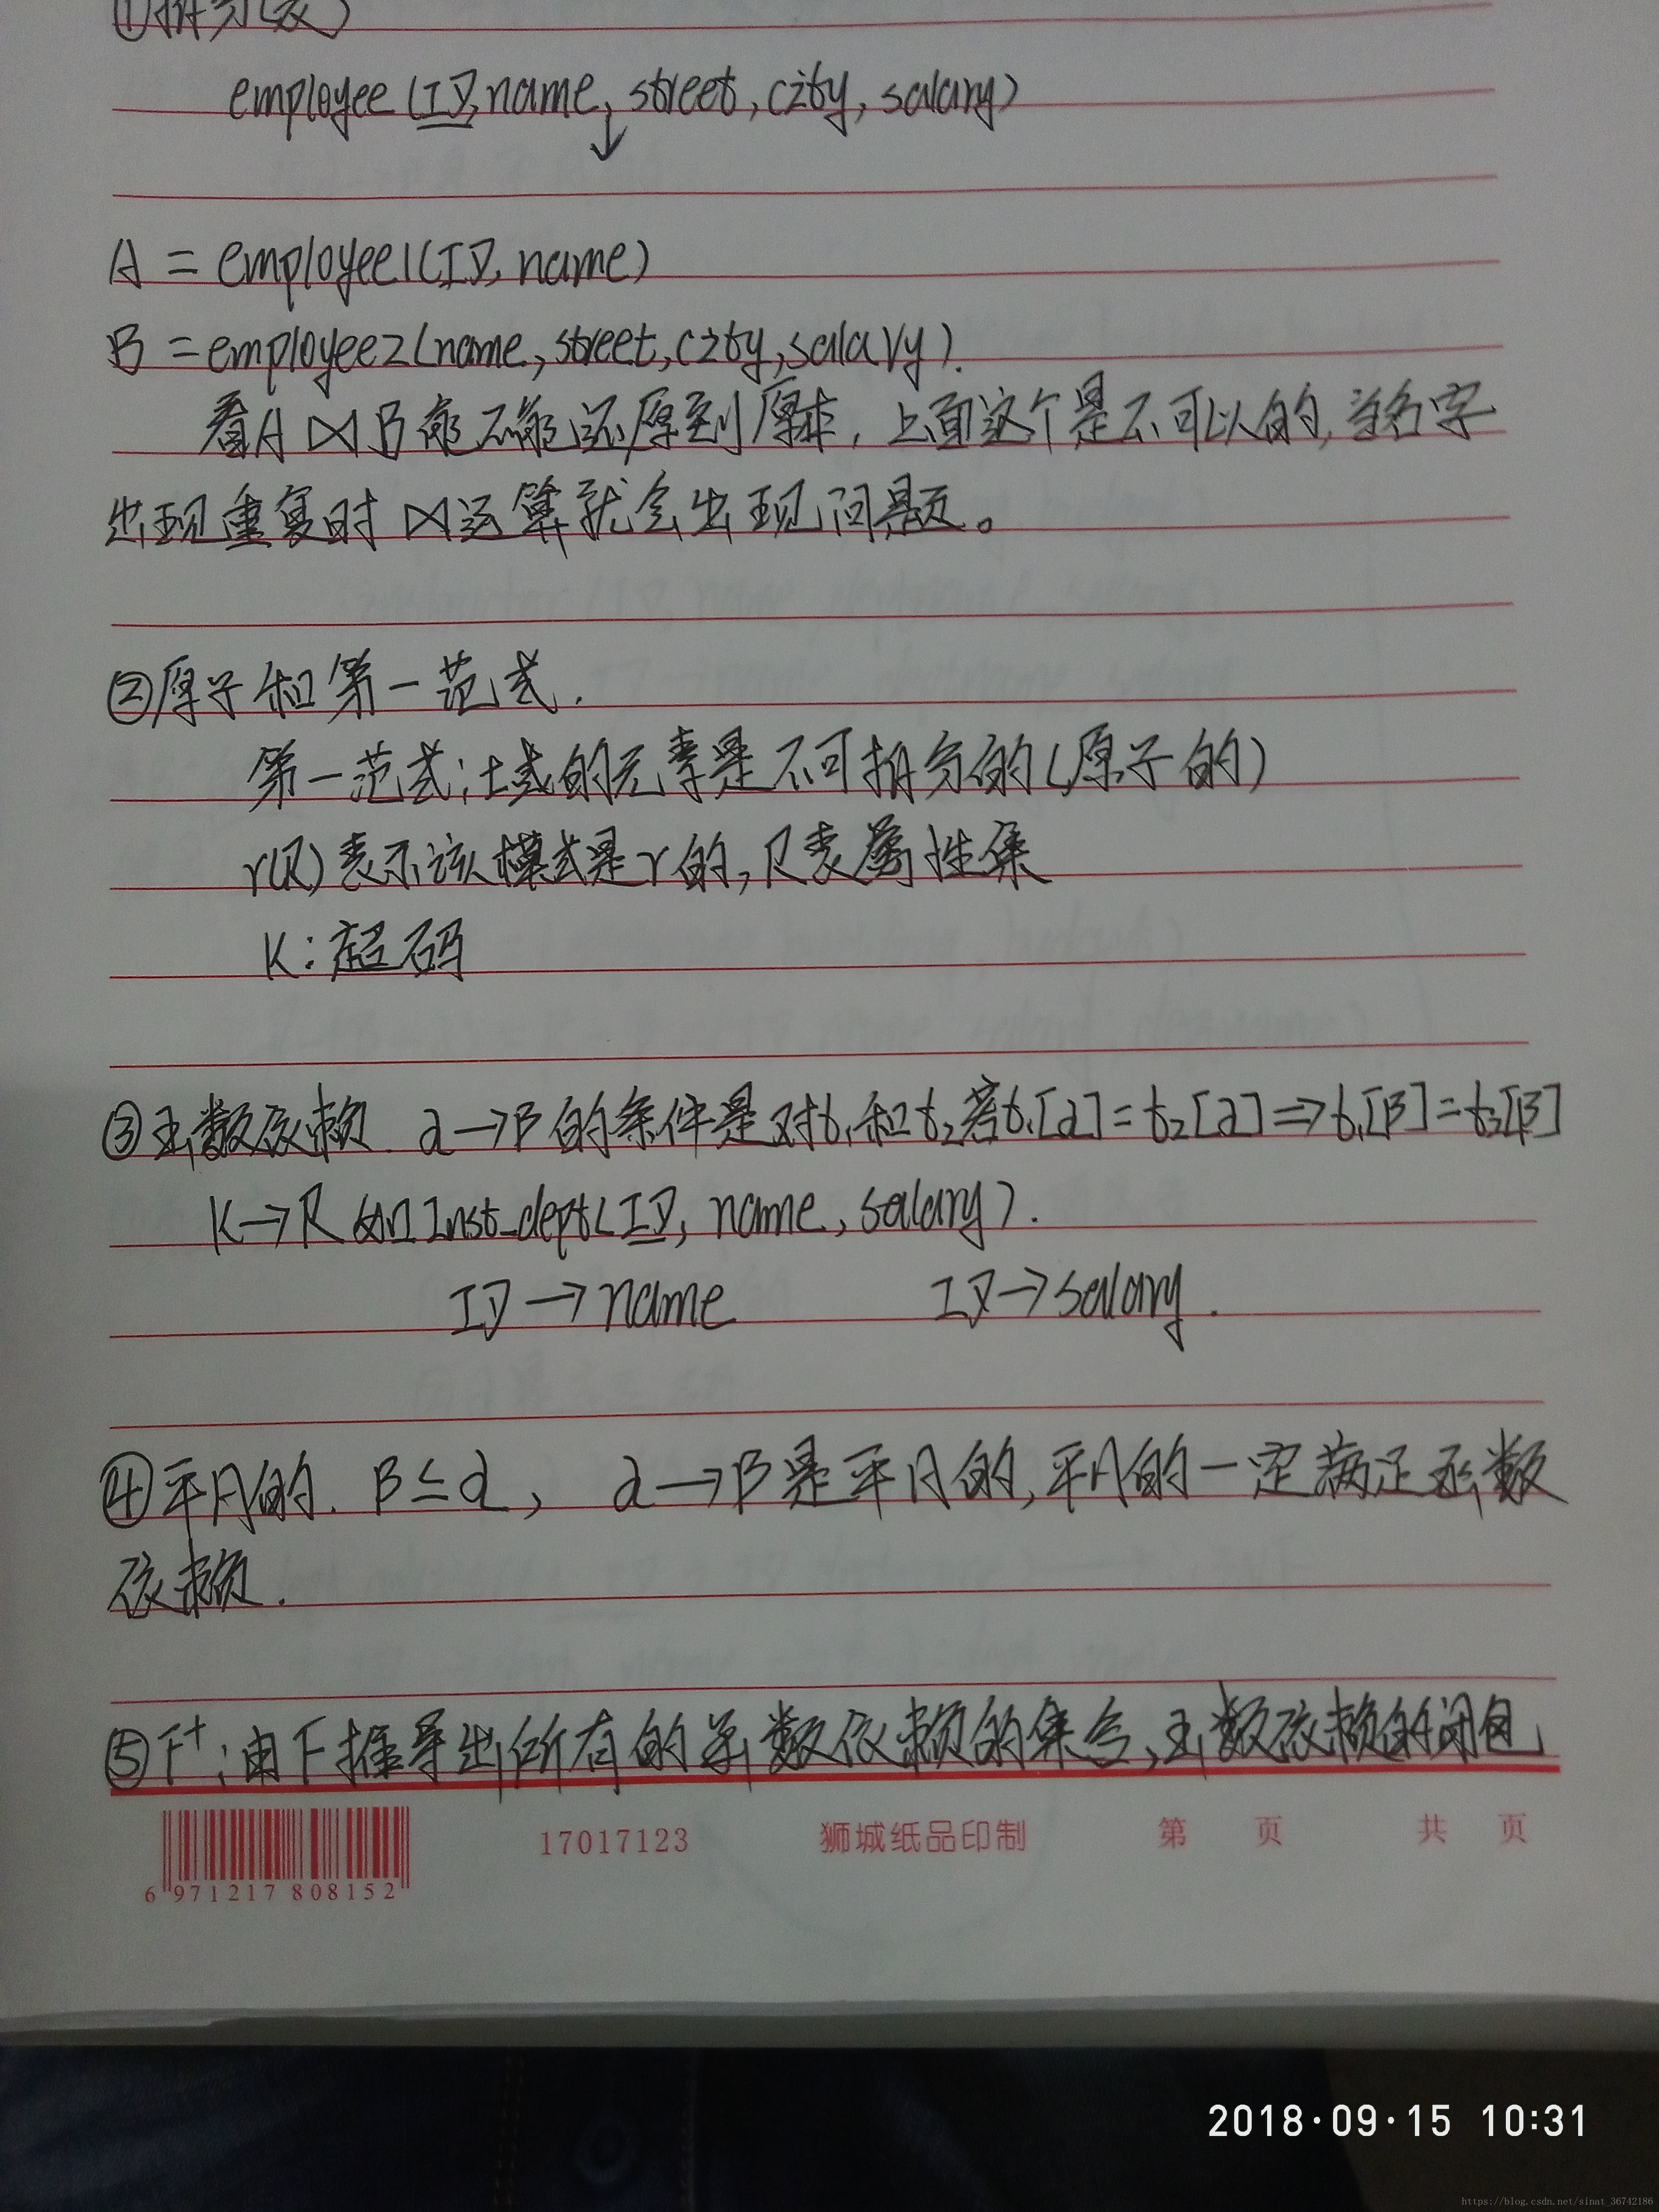 ①拆分(表)
employee (ID, name, street, city, salary)
↓
A = employee1(ID, name)
B = employee2(name, street, city, salary).
看A⋈B能不能还原到原来, 上面这个是不可以的, 当名字
出现重复时⋈运算就会出现问题。
②原子和第一范式.
第一范式: 域的元素是不可拆分的(原子的)
r(R)表示该模式是r的, R表属性集
K: 超码
③函数依赖. α→β的条件是对t₁和t₂若t₁[α]=t₂[α]⇒t₁[β]=t₂[β]
K→R 如 Inst_dept(ID, name, salary).
ID→name ID→salary.
④平凡的. β⊆α, α→β是平凡的, 平凡的一定满足函数
依赖.
⑤F⁺: 由F推导出所有的函数依赖的集合, 函数依赖的闭包
6 971217 808152 17017123 狮城纸品印制 第 页 共 页
2018·09·15 10:31
https://blog.csdn.net/sinat_36742186